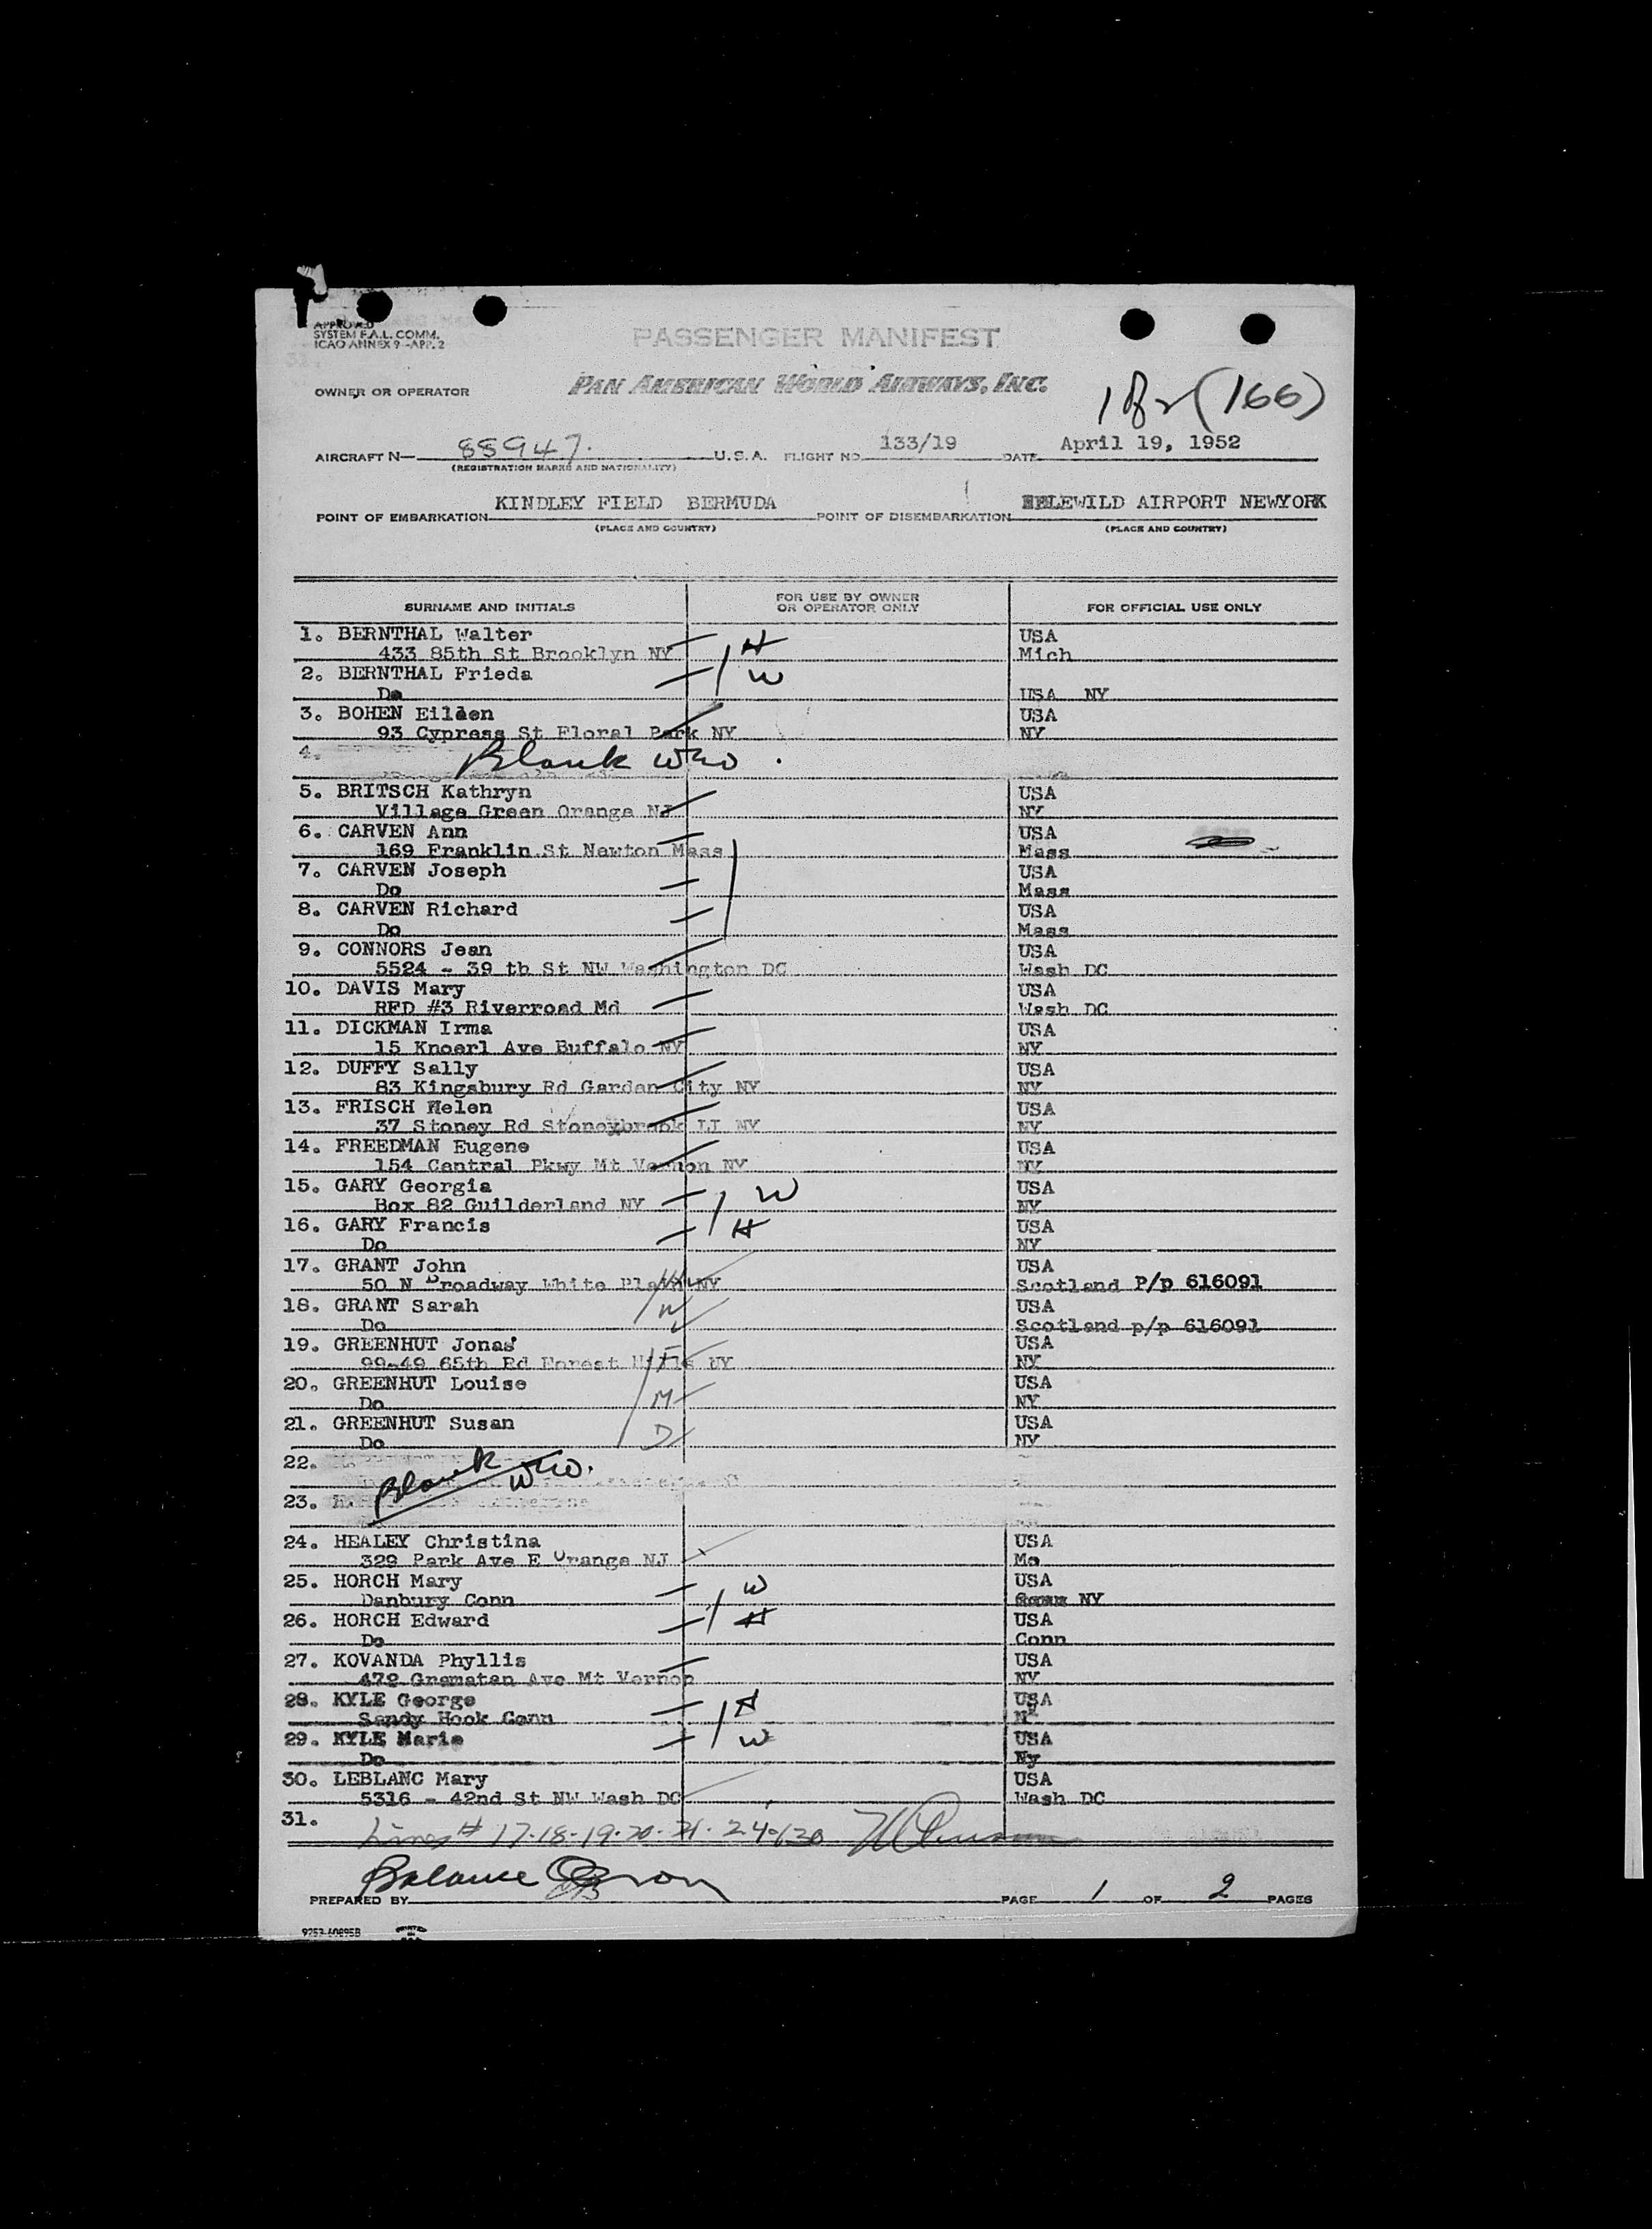 APPROVED
SYSTEM F.A.L. COMM.
ICAO ANNEX 9-APP. 2
PASSENGER MANIFEST
OWNER OR OPERATOR PAN AMERICAN WORLD AIRWAYS, INC.
(166)
AIRCRAFT N— 88947. U.S.A. FLIGHT NO. 133/19 DATE April 19, 1952
(REGISTRATION MARKS AND NATIONALITY)
POINT OF EMBARKATION KINDLEY FIELD BERMUDA POINT OF DISEMBARKATION IDLEWILD AIRPORT NEWYORK
(PLACE AND COUNTRY) (PLACE AND COUNTRY)
SURNAME AND INITIALS FOR USE BY OWNER OR OPERATOR ONLY FOR OFFICIAL USE ONLY
1. BERNTHAL Walter H USA
433 85th St Brooklyn NY Mich
2. BERNTHAL Frieda W
Do USA NY
3. BOHEN Eileen USA
93 Cypress St Floral Park NY NY
4. Blank
5. BRITSCH Kathryn USA
Village Green Orange NJ NY
6. CARVEN Ann USA
169 Franklin St Newton Mass Mass
7. CARVEN Joseph USA
Do Mass
8. CARVEN Richard USA
Do Mass
9. CONNORS Jean USA
5524 - 39 th St NW Washington DC Wash DC
10. DAVIS Mary USA
RFD #3 Riverroad Md Wash DC
11. DICKMAN Irma USA
15 Knoerl Ave Buffalo NY NY
12. DUFFY Sally USA
83 Kingsbury Rd Garden City NY NY
13. FRISCH Helen USA
37 Stoney Rd Stoneybrook LI NY NY
14. FREEDMAN Eugene USA
154 Central Pkwy Mt Vernon NY NY
15. GARY Georgia W USA
Box 82 Guilderland NY NY
16. GARY Francis H USA
Do NY
17. GRANT John USA
50 N Broadway White Plain NY Scotland P/p 616091
18. GRANT Sarah W USA
Do Scotland p/p 616091
19. GREENHUT Jonas USA
99-49 65th Rd Forest Hills NY F NY
20. GREENHUT Louise USA
Do M NY
21. GREENHUT Susan USA
Do D NY
22. Blank
23.
24. HEALEY Christina USA
329 Park Ave E Orange NJ Me
25. HORCH Mary W USA
Danbury Conn NY
26. HORCH Edward H USA
Do Conn
27. KOVANDA Phyllis USA
472 Gramatan Ave Mt Vernon NY
28. KYLE George H USA
Sandy Hook Conn
29. KYLE Marie W USA
Do Ny
30. LEBLANC Mary USA
5316 - 42nd St NW Wash DC Wash DC
31.
Lines # 17-18-19-20-21-24-&30
Balance
PREPARED BY PAGE 1 OF 2 PAGES